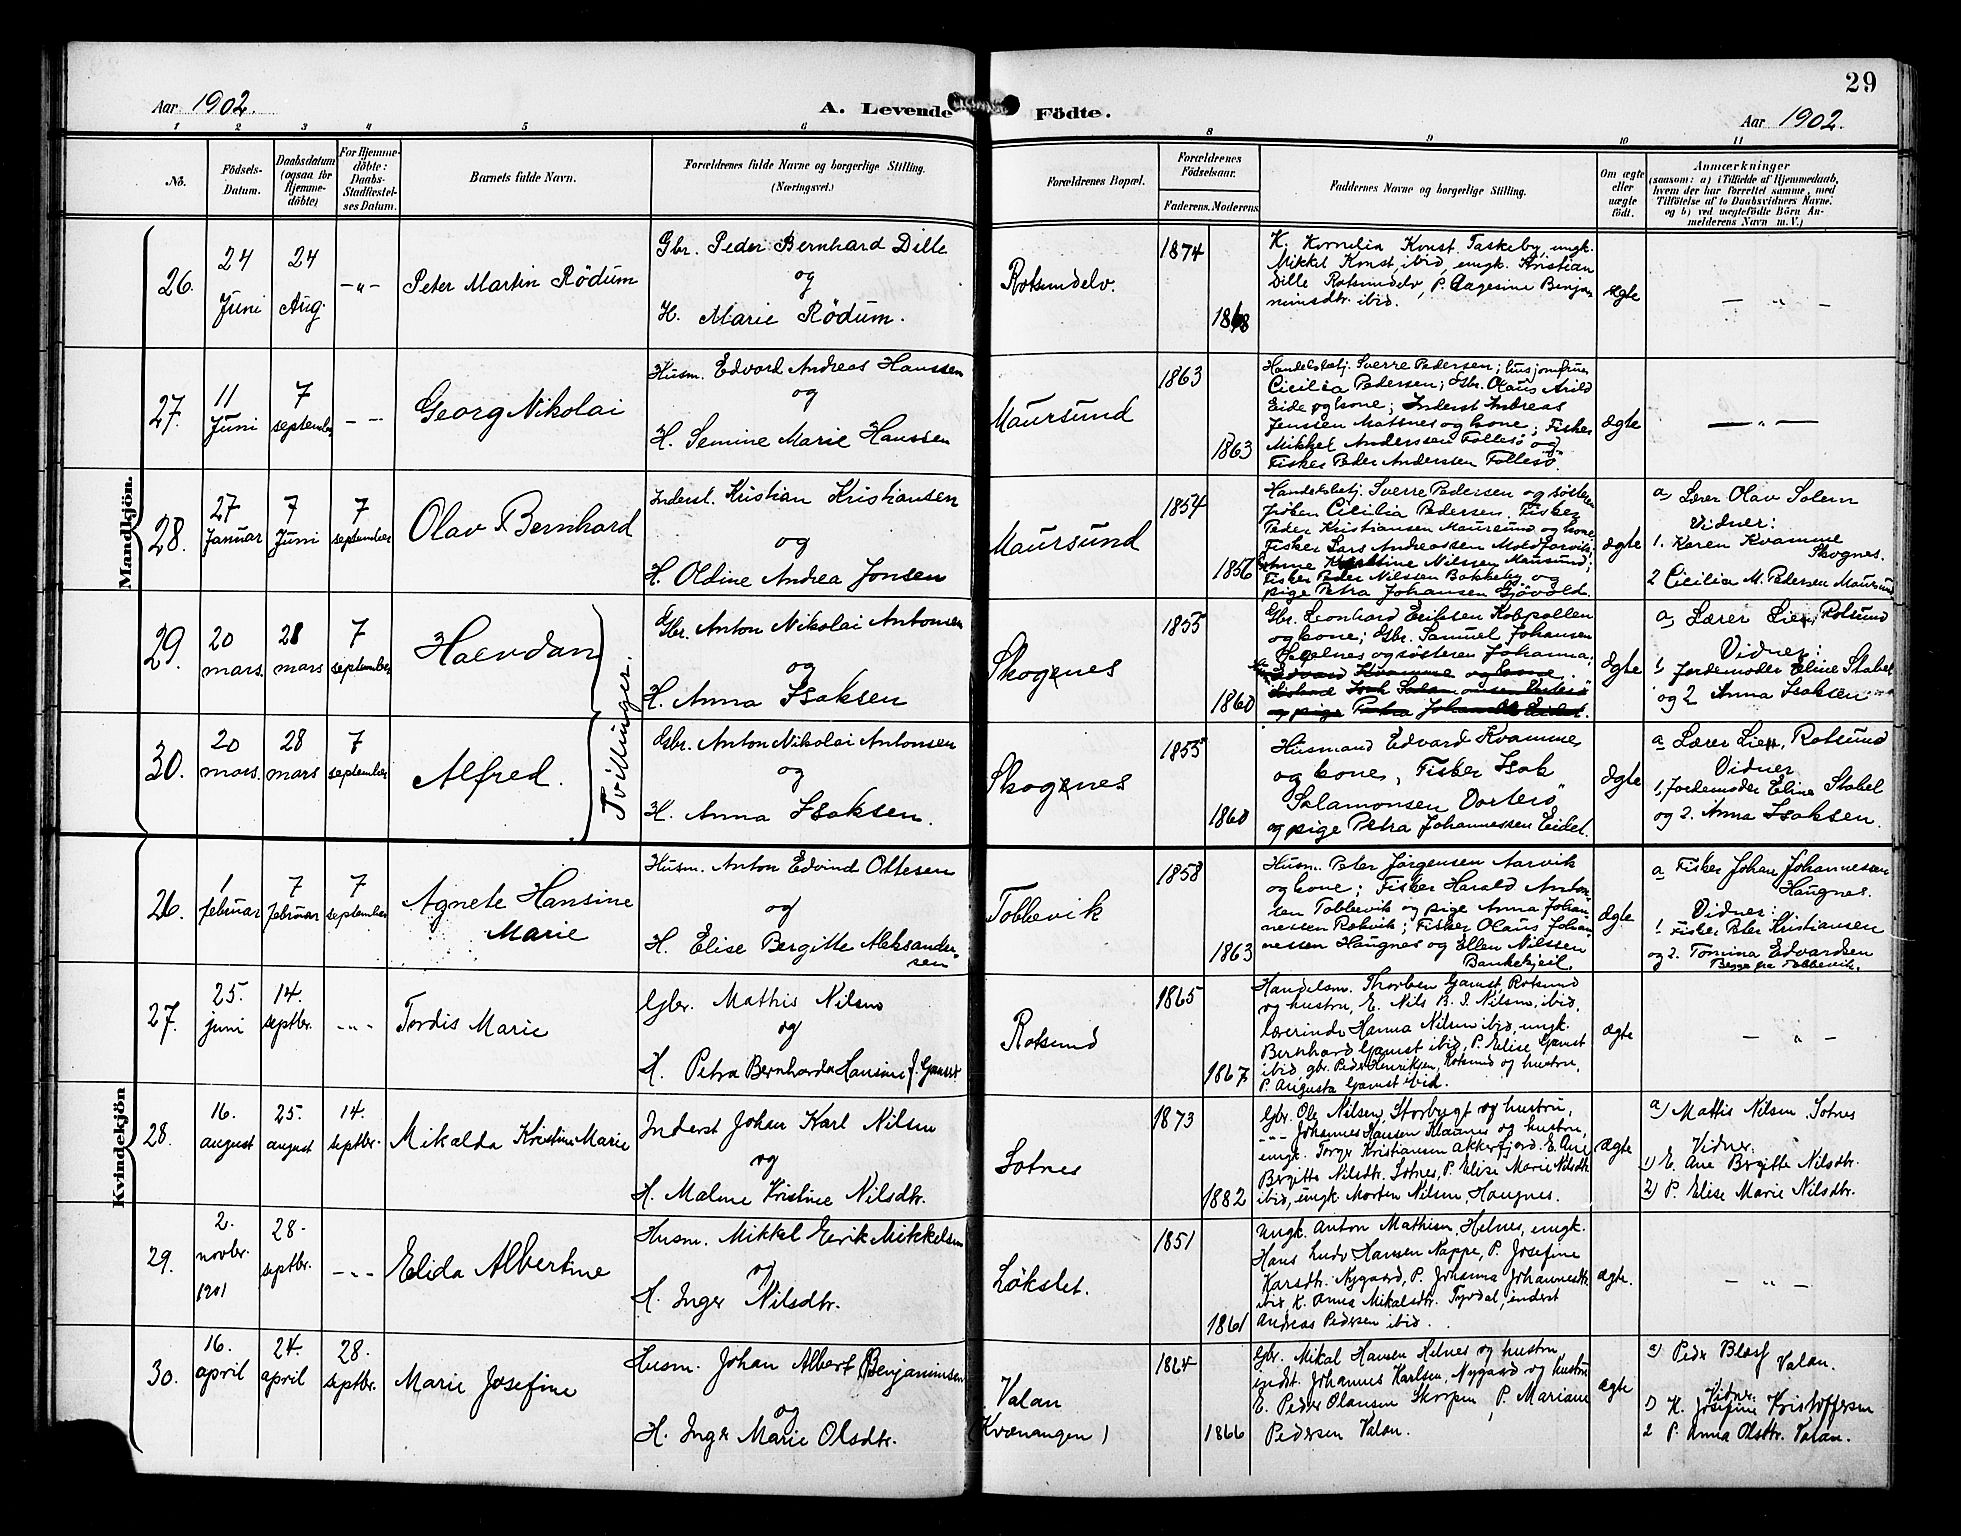 29
Aar 1902.
A. Levende Födte.
Aar 1902.
1 2 3 4 5 6 8 9 10 11
No.
Födsels-
Datum.
Daabsdatum
(ogsaa for
Hjemme-
döbte)
For Hjemme-
döbte:
Daabs-
Stadfæstel-
ses Datum.
Barnets fulde Navn.
Forældrenes fulde Navne og borgerlige Stilling.
(Næringsvei.)
Forældrenes Bopæl.
Forældrenes
Födselsaar.
Faderens. Moderens.
Faddernes Navne og borgerlige Stilling.
Om ægte
eller
uægte
födt.
Anmærkninger
(saasom: a) i Tilfælde af Hjemmedaab,
hvem der har forrettet samme, med
Tilföielse af to Daabsvidners Navne.
og b) ved uægtefödte Börn An-
melderens Navn m. V.)
Mandkjön.
26.
24
Juni
24
Aug.
-"-
Peter Martin Rödum
Gbr. Peder Bernhard Dille
og
H. Marie Rödum.
Rotsundelv.
1874
1868
K. Kornelia Konst, Taskeby, ungk.
Mikkel Konst, ibid, ungk. Kristian
Dille Rotsundelv, P. Aagesine Benja-
minsdtr. ibid.
ægte
- " -
27.
11
Juni
7
september
- -
Georg Nikolai
Husm. Edvard Andreas Hanssen
og
H. Semine Marie Hanssen
Maursund
1863
1863
Handelsbetj. Sverre Pedersen; husjomfru
Cicilia Pedersen; Gbr. Olaus Arild
Eide og kone; Inderst Andreas
Jenssen Matsnes og kone; Fisker
Mikkel Anderssen Follesö og
Fisker Peder Andersen Follesö.
ægte
- " -
28.
27
Januar
7
Juni
7
september
Olav Bernhard
Inderst. Kristian Kristiansen
og
H. Oldine Andrea Jonsen
Maursund
1854
1856
Handelsbetj. Sverre Pedersen og söster
Cicilia Pedersen. Fisker
Peder Kristiansen Maursund og kone
Fisker Lars Andreassen
Anne Nilssen Maursund;
Fisker Peder Nilssen Bakkeby og
pige Petra Johansen Gjövold.
ægte
a, Lærer Olav Solem
Vidner:
1. Karen Kvamme
Skognes.
2 Cicilia M. Pedersen Maursund
29.
20
mars.
28
mars
7
september
Haevdan
Tvillinger.
Gbr. Anton Nikolai Antonsen
og
H. Anna Isaksen
Skognes
1855
1860
Gbr. Leonhard Eriksen Kobpollen
og kone; Gbr. Samuel Johansen
Helnes og søsteren Johanna;
Edvard Kvamme og kone.
Isak Salamonsen Vorterö
og pige Petra Eidet.
ægte
a, Lærer Lien, Rotsund
Vidner:
1, Jordemoder Eline Stabel
og 2 Anna Isaksen
30.
20
mars.
28
mars
7
september
Alfred.
Gbr. Anton Nikolai Antonsen
og
H. Anna Isaksen.
Skognes
1855
1860
Husmand Edvard Kvamme
og kone, Fisker Isak
Salamonsen Vorterö
og pige Petra Johannessen Eidet.
ægte
a Lærer Lien, Rotsund
Vidner
1, Jordemoder Eline Stabel
og 2. Anna Isaksen.
Kvindekjön
26.
1
februar
7
februar
7
september
Agnete Hansine
Marie
Husm. Anton Edvind Ottesen
og
H. Elise Bergitte Aleksander-
sen
Tobbevik
1858
1863
Husm. Peter Jörgensen Aarvik
og kone; Fisker Harald Anton-
sen Tobbevik og pige Anna Johan-
nessen Rakvik; Fisker Olaus Johan-
nessen Haugnes og Ellen Nilssen
Bankekjeil.
ægte.
a Fisker Johan Johannessen
Haugnes.
Vidner:
1. Fisker Peter Kristiansen
og 2. Tomina Edvardsen
Begge fra Tobbevik.
27.
25.
juni
14.
septbr.
-"-
Tordis Marie
Gbr. Mathis Nilsen
og
H. Petra Bernharda Hansine f. Gamst
Rotsund
1865
1867
Handelsm. Thorben Gamst, Rotsund
og hustru, E. Nils B. I. Nilsen, ibid,
lærerinde Hanna Nilsen ibid, ungk.
Bernhard Gamst ibid, P. Elise Gamst
ibid, gbr. Peder Henriksen, Rotsund og hustru,
P. Augusta Gamst ibid.
ægte
- " -
28.
16.
august
25.
august
14.
septbr.
Mikalda Kristine Marie
Inderst Johan Karl Nilsen
og
H. Malene Kristine Nilsdtr.
Sotnes
1873
1882
Gbr. Ole Nilsen, Storbygt og hustru,
-"- Johannes Hansen Klaanes og hustru,
ungk. Torger Kristiansen Akkerfjord. E. Ane
Birgitte Nilsdtr. Sotnes, P. Elise Marie Nilsdtr.
ibid, ungk. Morten Nilsen, Haugnes.
ægte
a) Mattis Nilsen, Sotnes
Vidner.
1) E. Ane Birgitte Nilsdtr.
2) P. Elise Marie Nilsdtr.
29.
2.
novbr.
1901
28.
septbr.
-"-
Elida Albertine
Husm. Mikkel Eerik Mikkelsen
og
H. Inger Nilsdtr.
Lökslet.
1851
1861
Ungk. Anton Mathisen, Helnes, ungk.
Hans Ludv Hansen Nappe, P. Josefine
Karsdtr. Nygaard, P. Johanna Johannesdtr.
ibid, K. Anna Mikalsdtr. Tyvdal, inderst
Andreas Pedersen ibid.
ægte.
- " -
30.
16.
april
24.
april
28.
septbr.
Marie Josefine
Husm. Johan Albert Benjaminsen
og
H. Inger Marie Olsdtr.
Valan
(Kvænangen)
1864
1866
Gbr. Mikal Hansen Helnes og hustru,
inderst. Johannes Karlsen, Nygaard og hustru
E. Peder Olausen Skorpen, P. Mariane
Pedersen Valan.
ægte
a) Peder
Valan.
Vidner.
1) K. Josefine Kristoffersen
2 P. Anna Olsdtr. Valan.